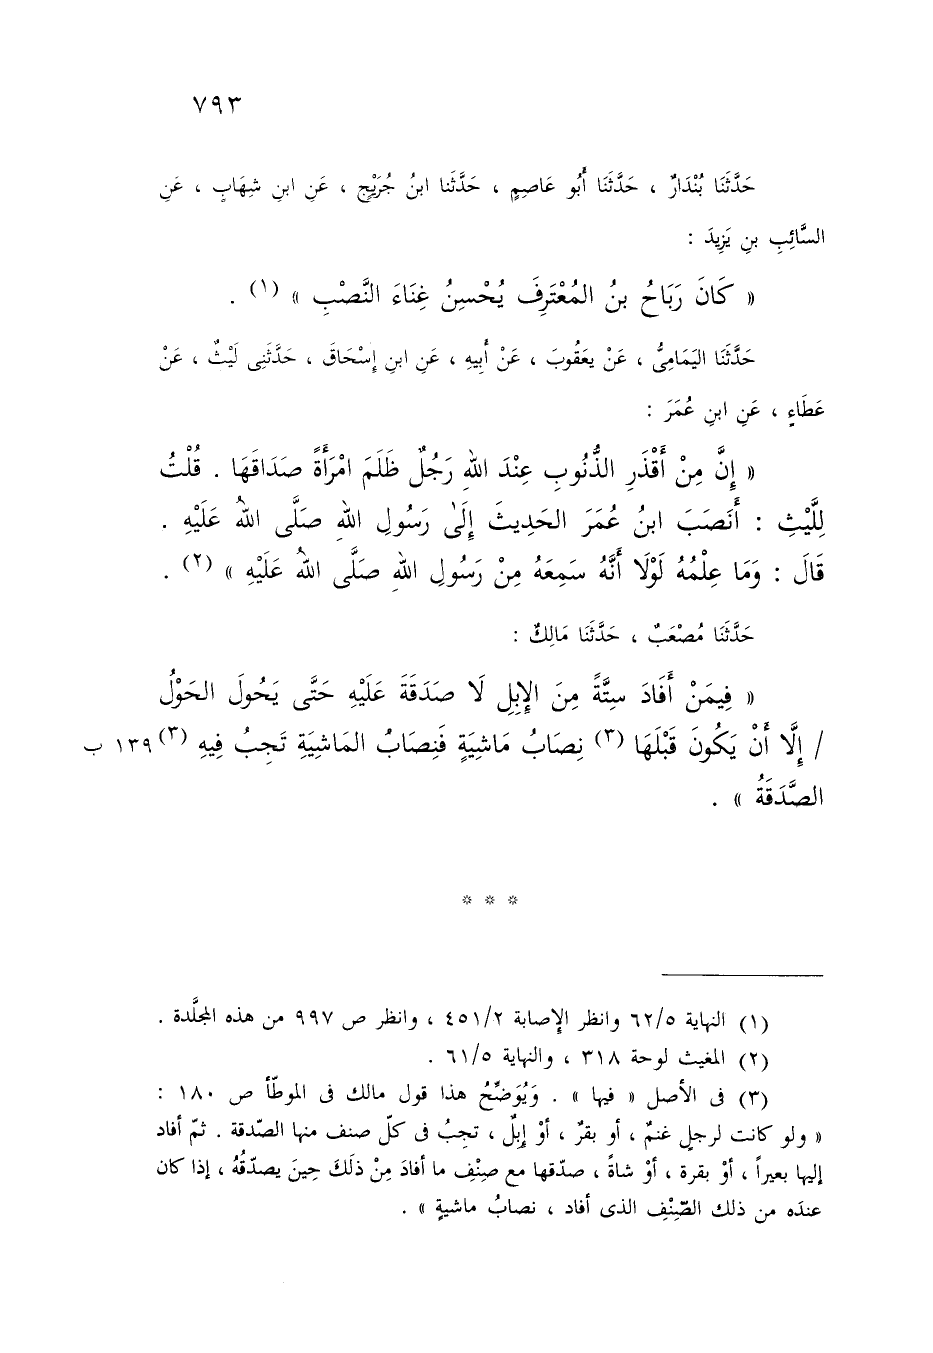 ٧٩٣
حَدَّثَنَا بُنْدَارٌ ، حَدَّثَنَا أَبُو عَاصِمٍ ، حَدَّثَنَا ابنُ جُرَيْجٍ ، عَنِ ابنِ شِهَابٍ ، عَنِ
السَّائِبِ بنِ يَزِيدَ :
« كَانَ رَبَاحُ بنُ المُعْتَرِفَ يُحْسِنُ غِنَاءَ النَّصْبِ » (١) .
حَدَّثَنَا اليَمَامِىُّ ، عَنْ يعَقُوبَ ، عَنْ أَبِيهِ ، عَنِ ابنِ إِسْحَاقَ ، حَدَّثَنِى لَيْثٌ ، عَنْ
عَطَاءٍ ، عَنِ ابنِ عُمَرَ :
« إِنَّ مِنْ أَقْذَرِ الذُّنُوبِ عِنْدَ اللهِ رَجُلٌ ظَلَمَ امْرَأَةً صَدَاقَهَا . قُلْتُ
لِلَّيْثِ : أَنَصَبَ ابنُ عُمَرَ الحَدِيثَ إِلَىٰ رَسُولِ اللهِ صَلَّى اللهُ عَلَيْهِ .
قَالَ : وَمَا عِلْمُهُ لَوْلَا أَنَّهُ سَمِعَهُ مِنْ رَسُولِ اللهِ صَلَّى اللهُ عَلَيْهِ » (٢) .
حَدَّثَنَا مُصْعَبٌ ، حَدَّثَنَا مَالِكٌ :
« فِيمَنْ أَفَادَ سِتَّةً مِنَ الإِبِلِ لَا صَدَقَةَ عَلَيْهِ حَتَّى يَحُولَ الحَوْلُ
/ إِلَّا أَنْ يَكُونَ قَبْلَهَا (٣) نِصَابُ مَاشِيَةٍ فَنِصَابُ المَاشِيَةِ تَجِبُ فِيهِ (٣) ١٣٩ ب
الصَّدَقَةُ » .
* * *
(١) النهاية ٦٢/٥ وانظر الإصابة ٤٥١/٢ ، وانظر ص ٩٩٧ من هذه المجلَّدة .
(٢) المغيث لوحة ٣١٨ ، والنهاية ٦١/٥ .
(٣) فى الأصل « فيها » . وَيُوَضِّحُ هذا قول مالك فى الموطّأ ص ١٨٠ :
« ولو كانت لرجلٍ غنمٌ ، أو بقرٌ ، أوْ إِبِلٌ ، تجبُ فى كلّ صنف منها الصّدقة . ثمّ أفاد
إليها بعيراً ، أوْ بقرة ، أوْ شاةً ، صدّقها مع صِنْفِ ما أفادَ مِنْ ذلَكَ حِينَ يصدّقُهُ ، إذا كان
عندَه من ذلك الصِّنْفِ الذى أفاد ، نصابُ ماشيةٍ » .